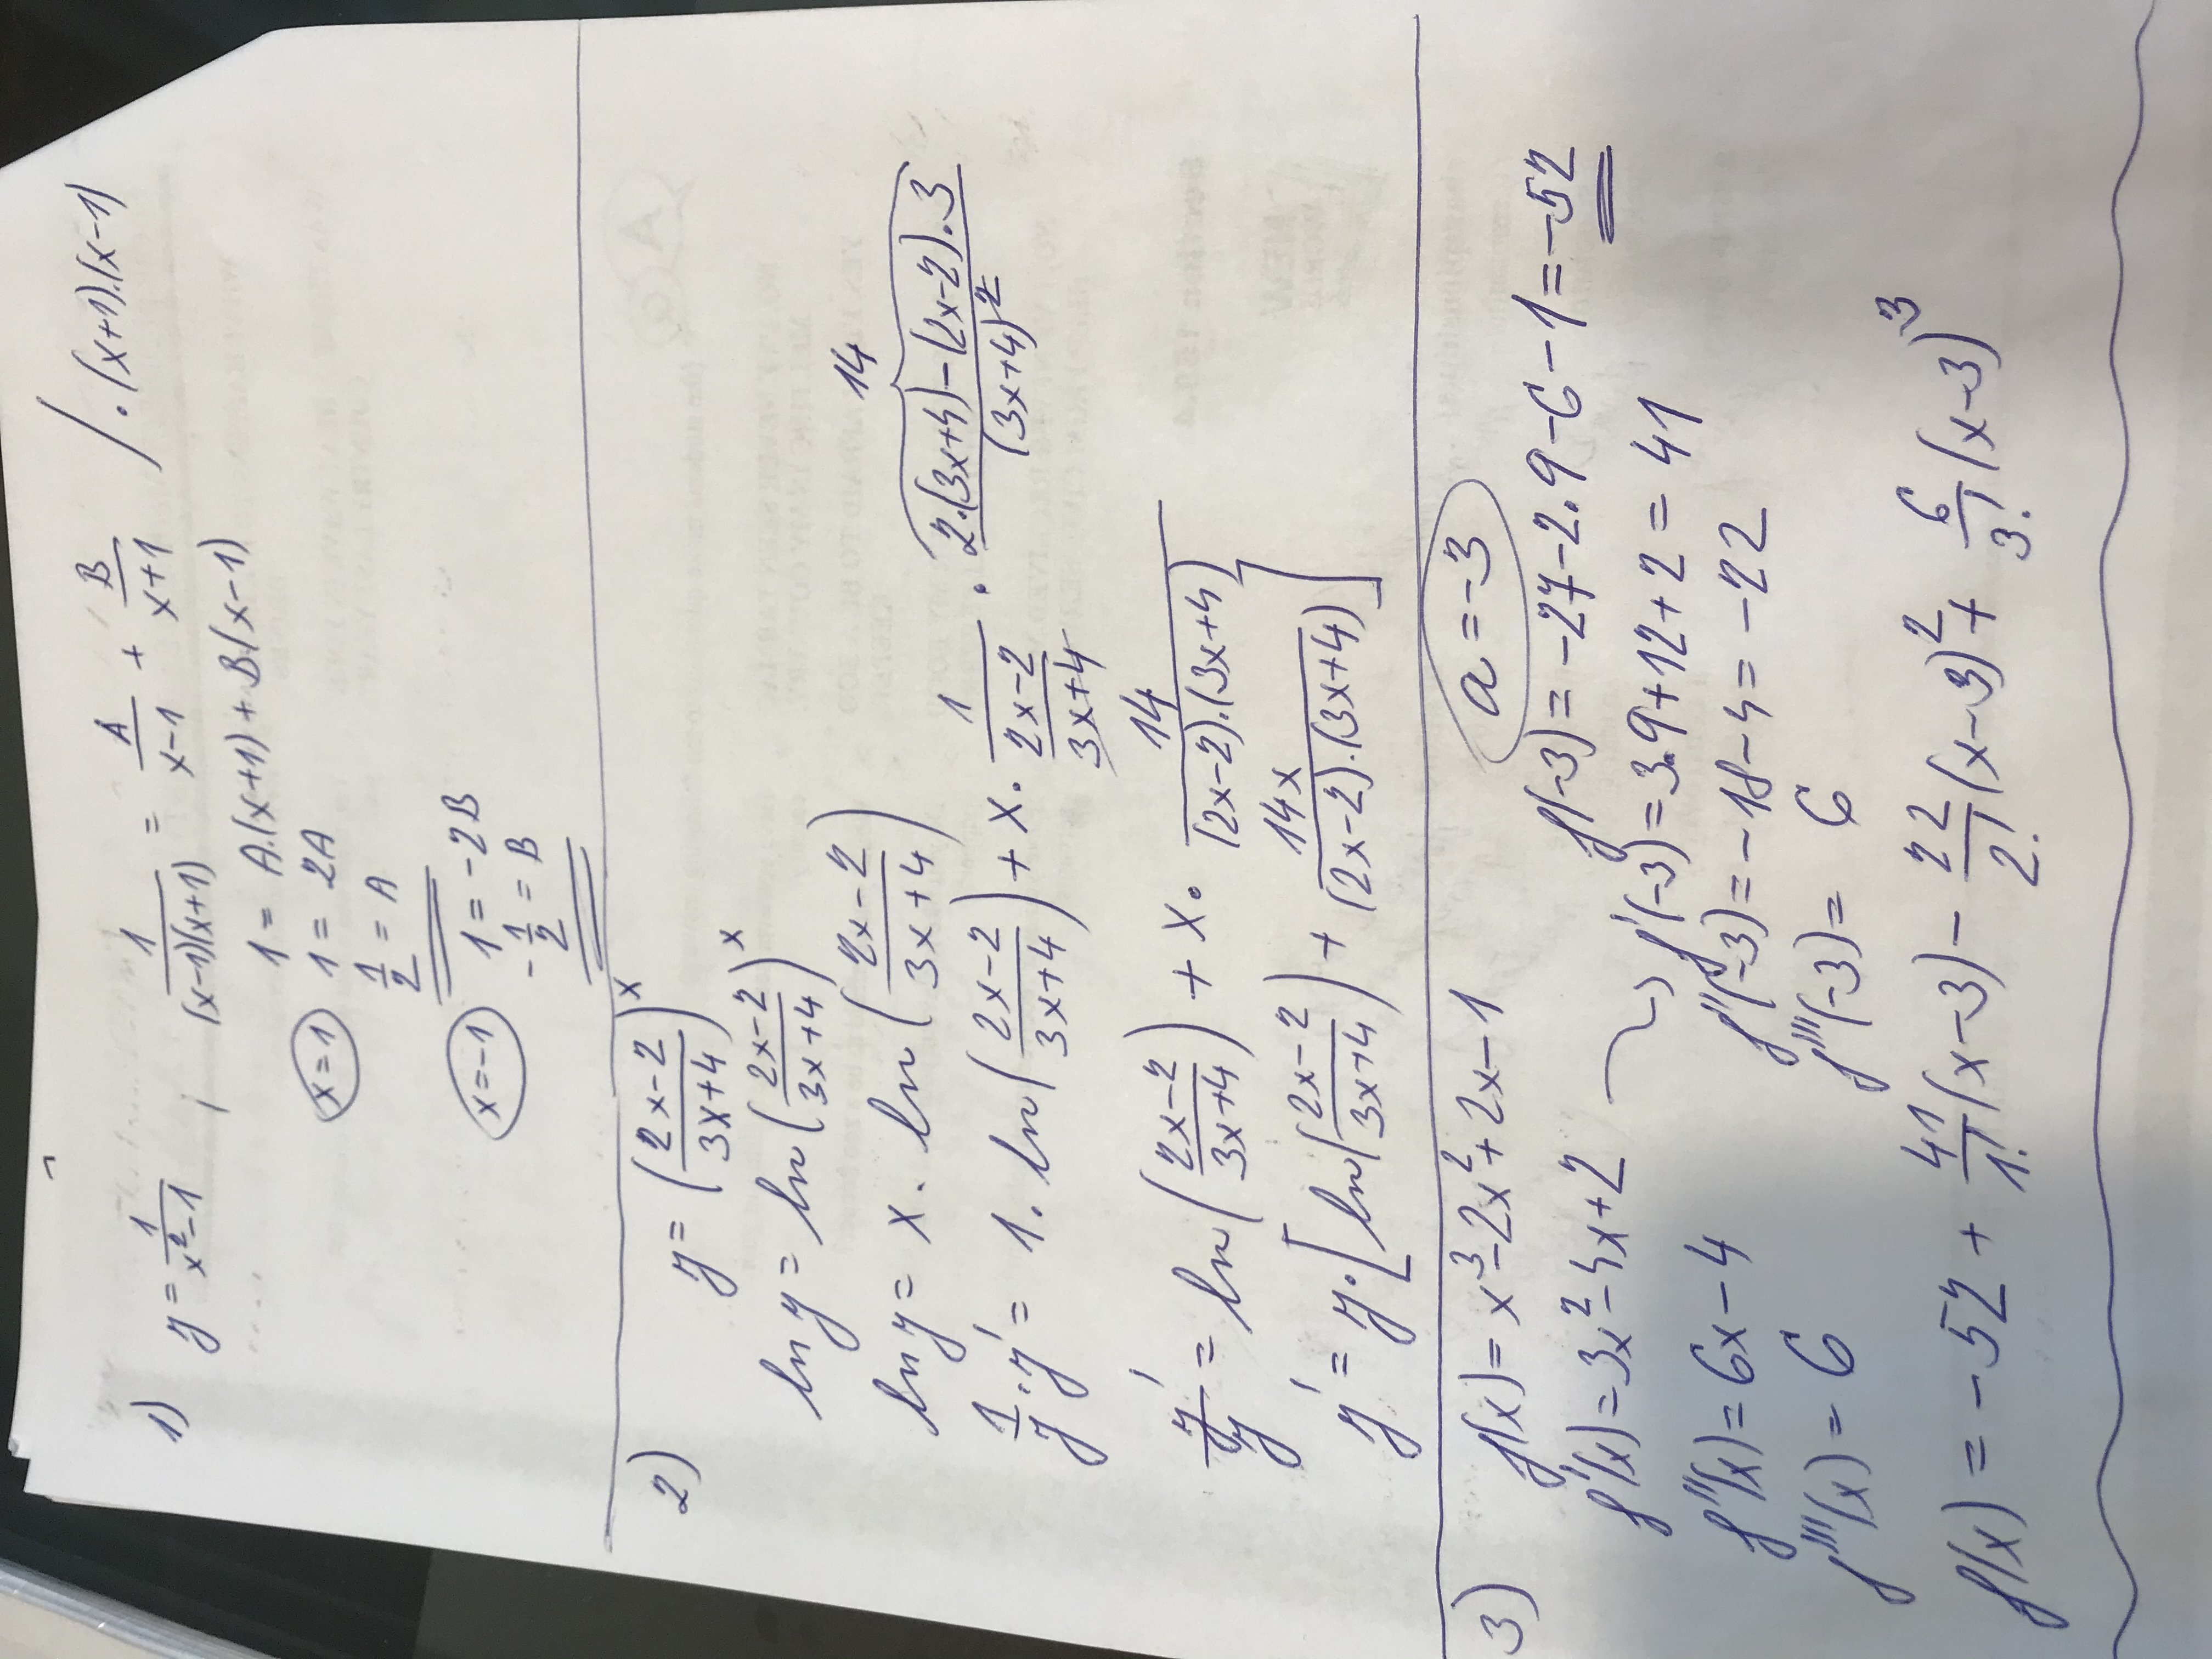 1) y = 1/(x²-1)   1/((x-1)(x+1)) = A/(x-1) + B/(x+1)   /·(x+1)·(x-1)
1 = A·(x+1) + B·(x-1)
x=1   1 = 2A
1/2 = A
x=-1   1 = -2B
-1/2 = B
2) y = ((2x-2)/(3x+4))^x
ln y = ln((2x-2)/(3x+4))^x
ln y = x · ln((2x-2)/(3x+4))
14
1/y · y' = 1 · ln((2x-2)/(3x+4)) + x · 1/((2x-2)/(3x+4)) · (2·(3x+4)-(2x-2)·3)/(3x+4)²
y'/y = ln((2x-2)/(3x+4)) + x · 14/((2x-2)·(3x+4))
y' = y·[ln((2x-2)/(3x+4)) + 14x/((2x-2)·(3x+4))]
3) f(x) = x³-2x²+2x-1   a=-3
f'(x) = 3x²-4x+2   f(-3) = -27-2·9-6-1 = -52
f'(-3) = 3·9+12+2 = 41
f''(x) = 6x-4   f''(-3) = -18-4 = -22
f'''(x) = 6   f'''(-3) = 6
f(x) = -52 + 41/1! (x-3) - 22/2! (x-3)² + 6/3! (x-3)³